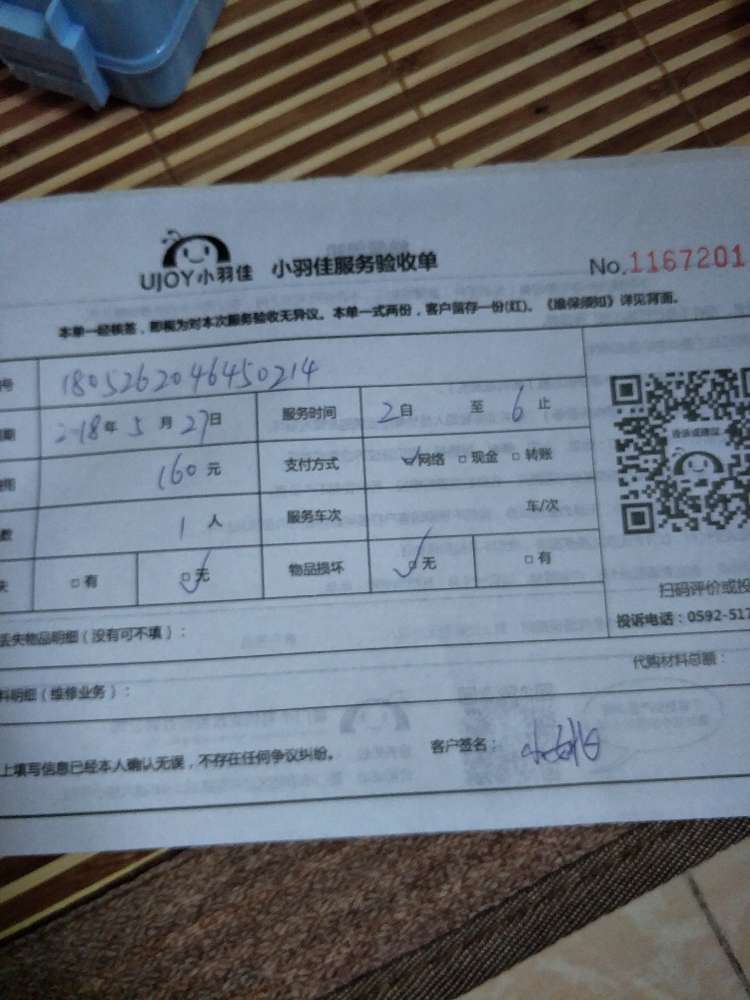 UJOY小羽佳 小羽佳服务验收单 No.1167201
本单一经核签，即视为对本次服务验收无异议。本单一式两份，客户留存一份(红)。《维保须知》详见背面。
号 1805262046450214
期 2018年5月27日 服务时间 2自 至 6止
160元 支付方式 网络 现金 转账
数 1人 服务车次 车/次
失 有 无 物品损坏 无 有
投诉或建议
扫码评价或投
投诉电话：0592-517
丢失物品明细（没有可不填）：
代购材料总额：
料明细（维修业务）：
上填写信息已经本人确认无误，不存在任何争议纠纷。 客户签名：